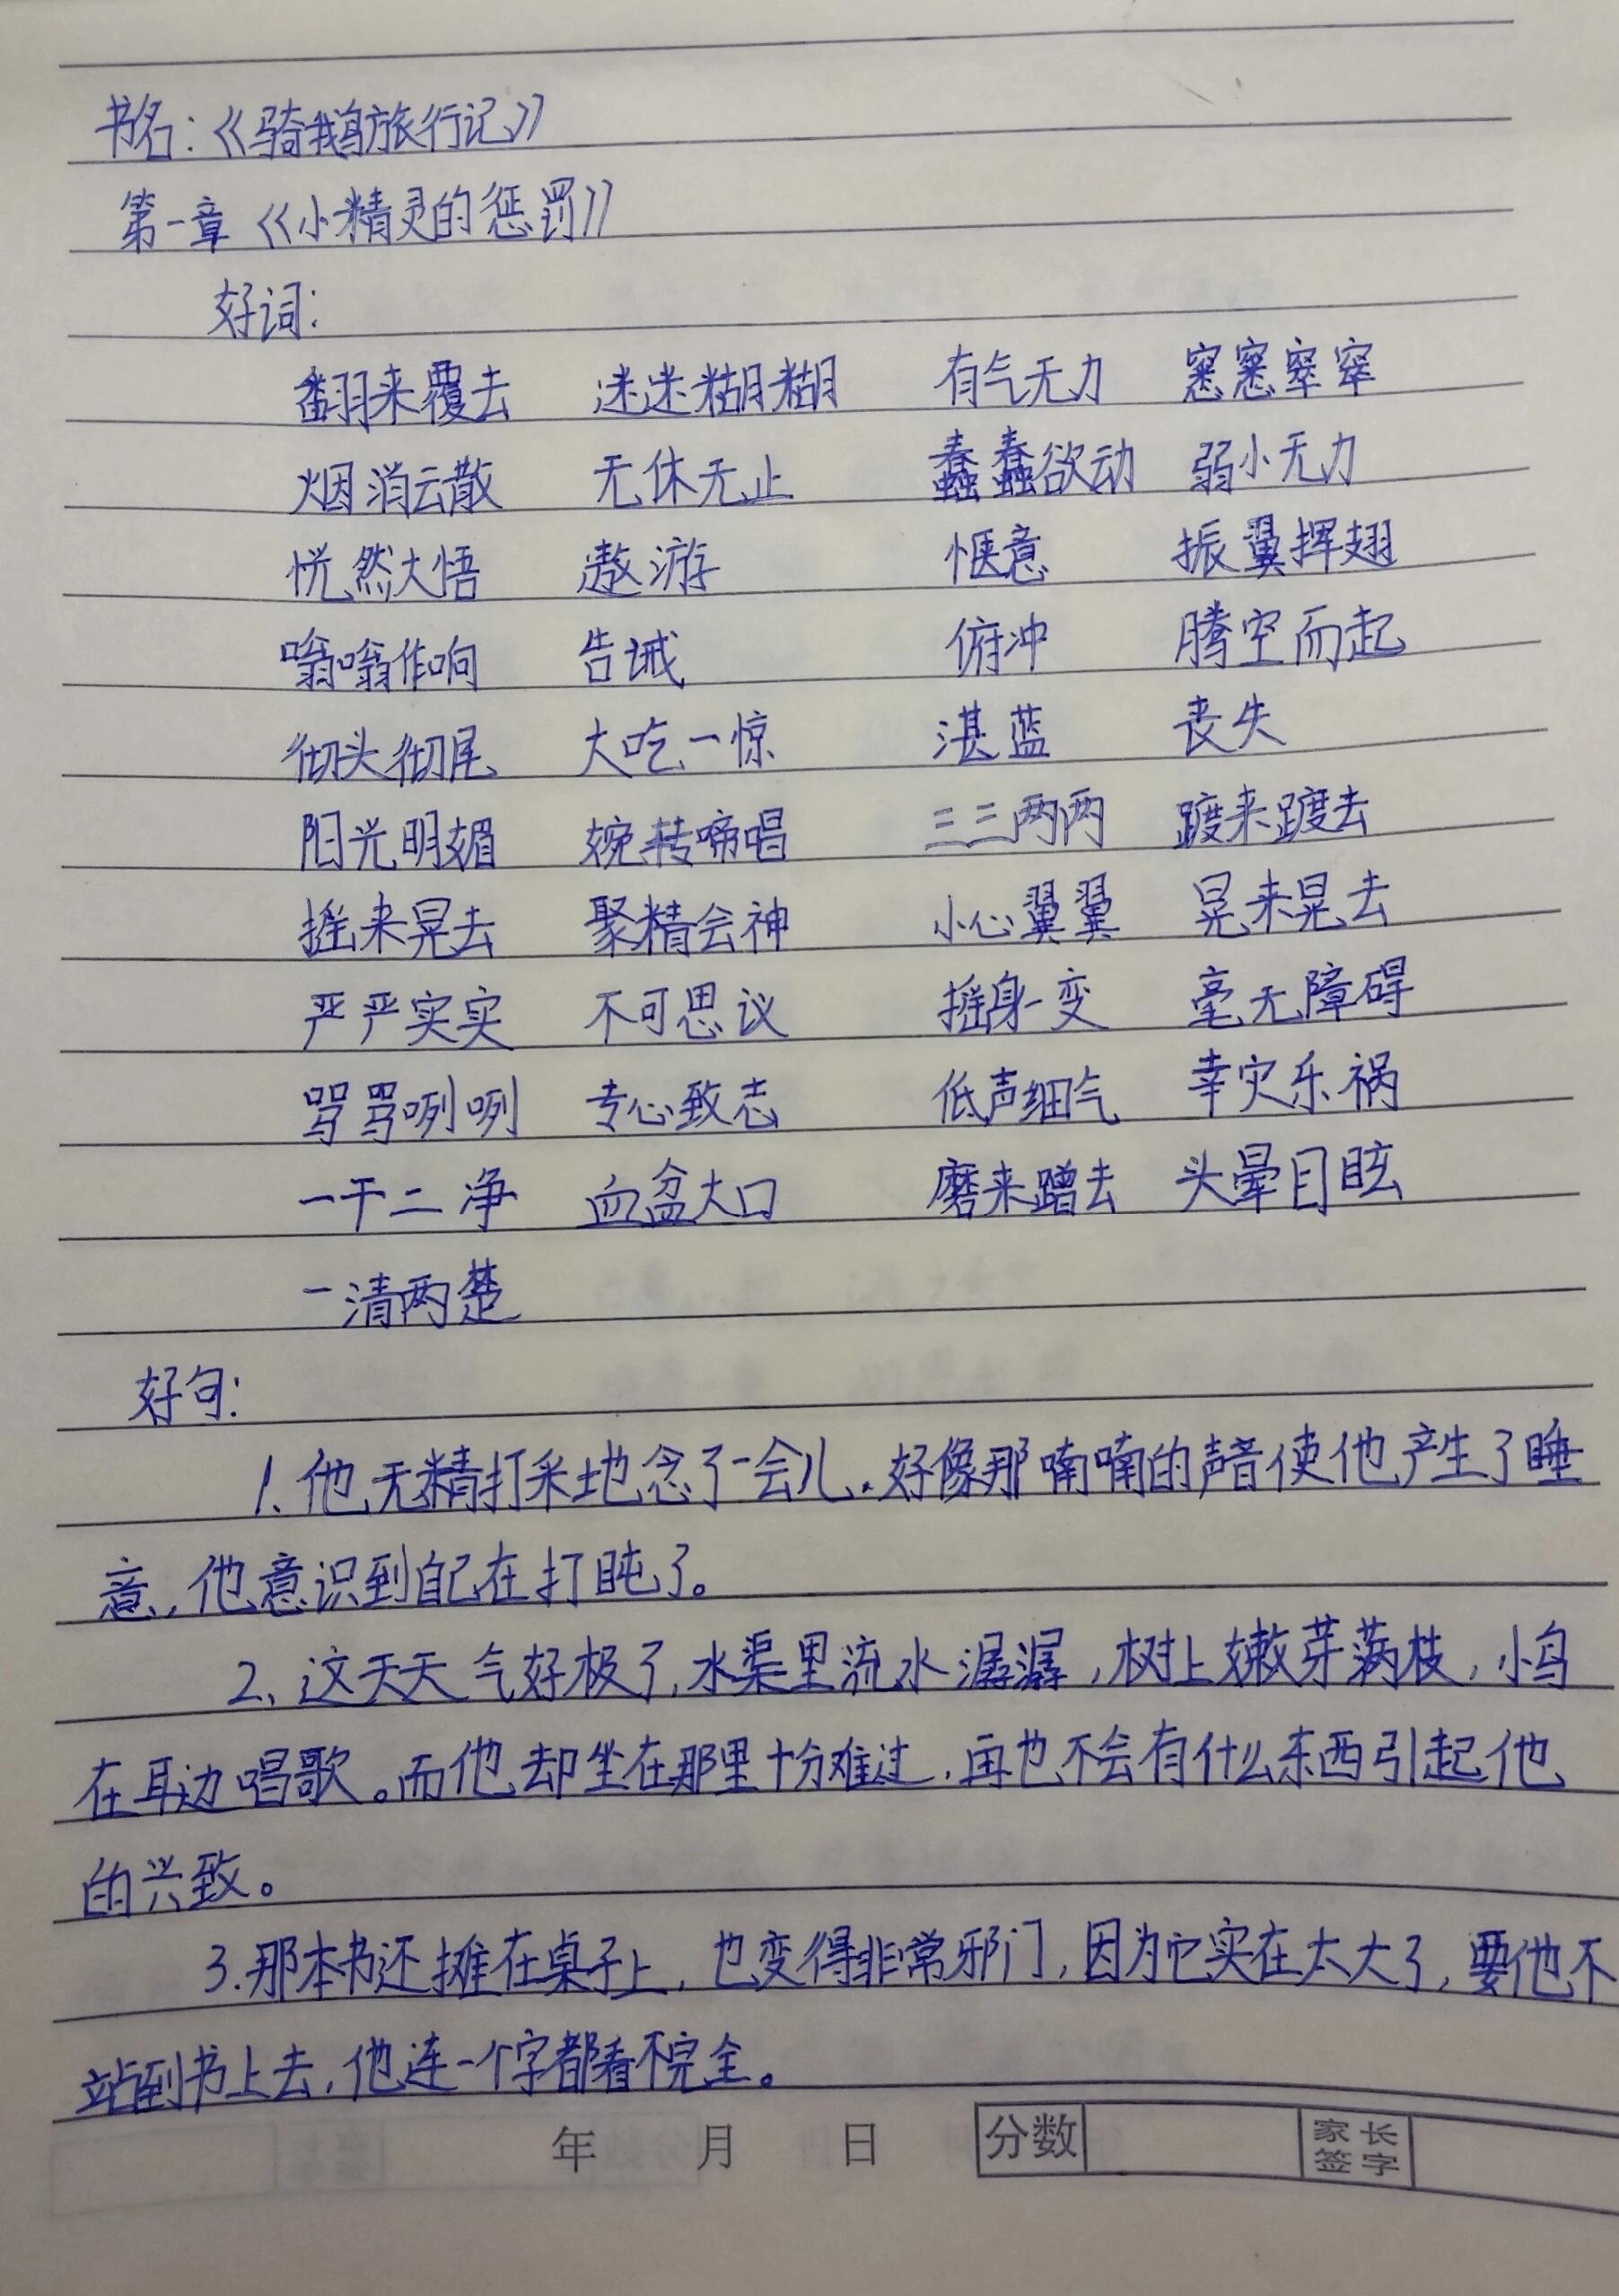 书名：《骑鹅旅行记》
第一章《小精灵的惩罚》
好词：
翻来覆去 迷迷糊糊 有气无力 窸窸窣窣
烟消云散 无休无止 蠢蠢欲动 弱小无力
恍然大悟 遨游 惬意 振翼挥翅
嗡嗡作响 告诫 俯冲 腾空而起
彻头彻尾 大吃一惊 湛蓝 丧失
阳光明媚 婉转啼唱 三三两两 踱来踱去
摇来晃去 聚精会神 小心翼翼 晃来晃去
严严实实 不可思议 摇身一变 毫无障碍
骂骂咧咧 专心致志 低声细气 幸灾乐祸
一干二净 血盆大口 磨来蹭去 头晕目眩
一清两楚
好句：
1、他无精打采地念了一会儿，好像那喃喃的声音使他产生了睡
意，他意识到自己在打盹了。
2、这天天气好极了，水渠里流水潺潺，树上嫩芽满枝，小鸟
在耳边唱歌。而他却坐在那里十分难过，再也不会有什么东西引起他
的兴致。
3.那本书还摊在桌子上，也变得非常邪门，因为它实在太大了，要他不
站到书上去，他连一个字都看不完全。
年 月 日 分数 家长签字